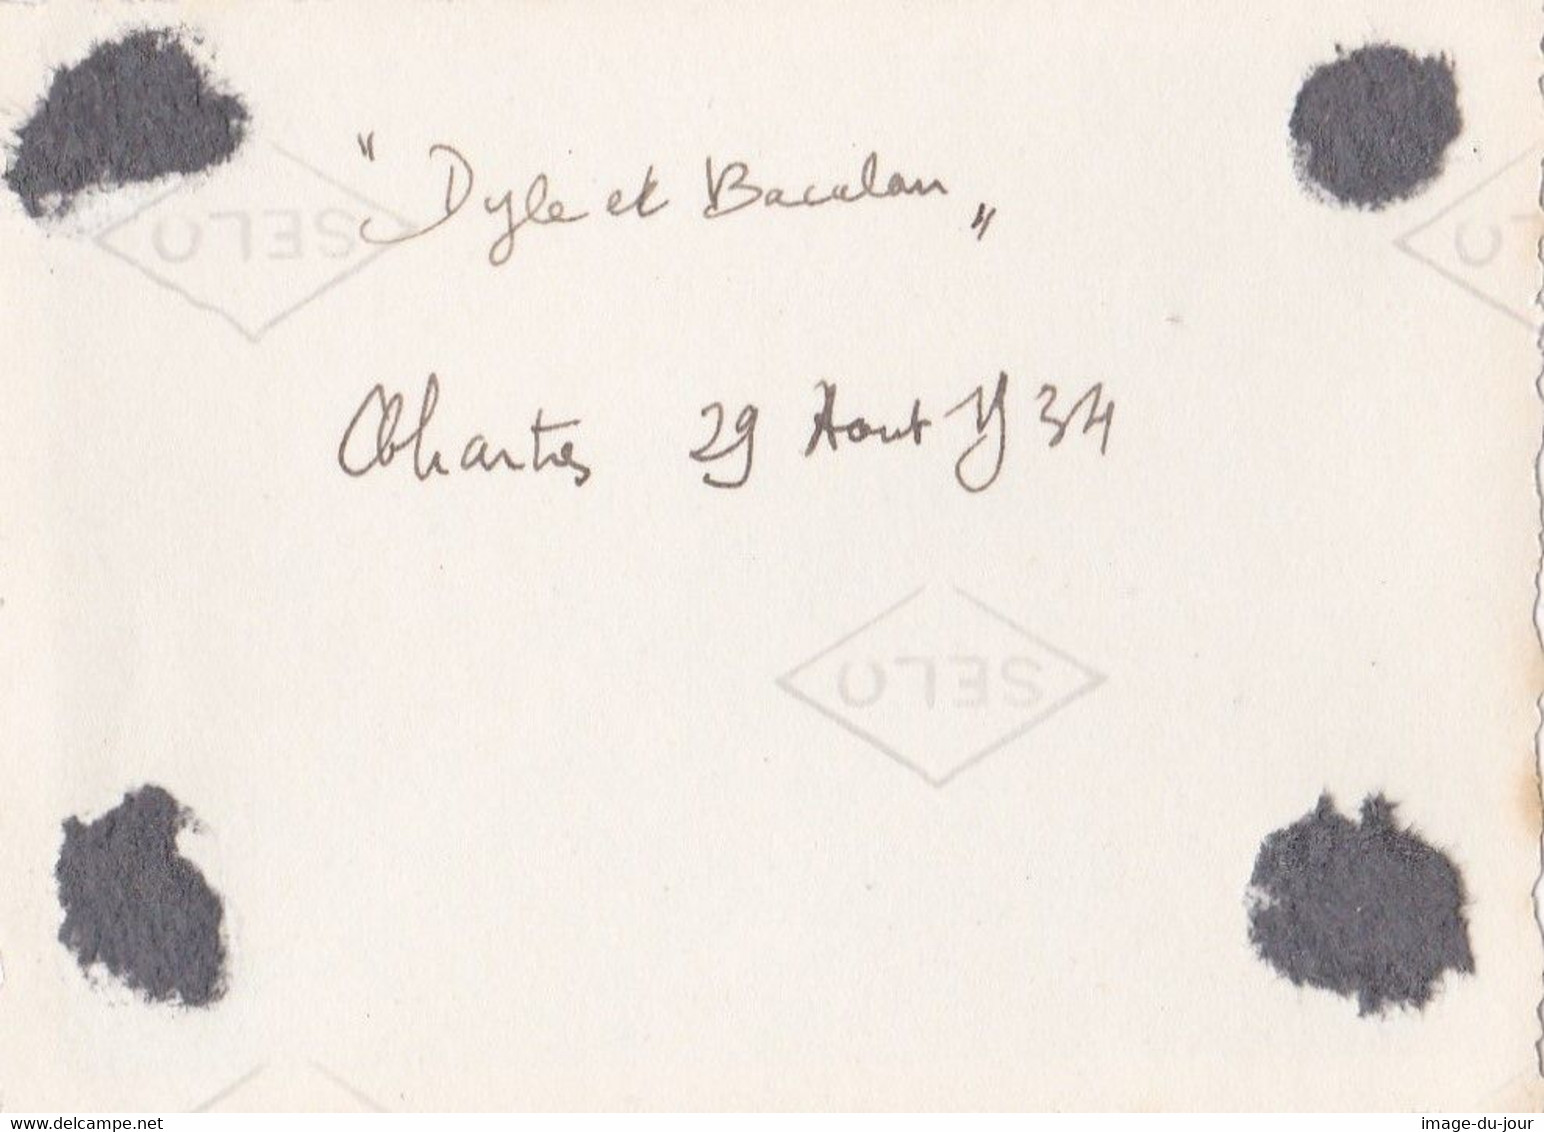 " Dyle et Bacalan "
SELO
Chartres 29 Aout 1934
SELO
delcampe.net
image-du-jour